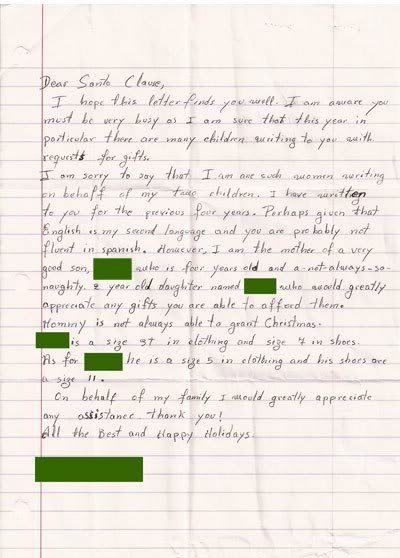 Dear Santa Clause,
I hope this letter finds you well. I am aware you
must be very busy as I am sure that this year in
particular there are many children writing to you with
requests for gifts.
I am sorry to say that I am one such women writing
on behalf of my two children. I have written
to you for the previous four years. Perhaps given that
English is my second language and you are probably not
fluent in spanish. However, I am the mother of a very
good son, who is four years old and a-not-always-so-
naughty. 2 year old daughter named who would greatly
appreciate any gifts you are able to afford them.
Mommy is not always able to grant Christmas.
is a size 3t in clothing and size 7 in shoes.
As for he is a size 5 in clothing and his shoes are
a size 11.
On behalf of my family I would greatly appreciate
any assistance. thank you!
All the Best and Happy Holidays.